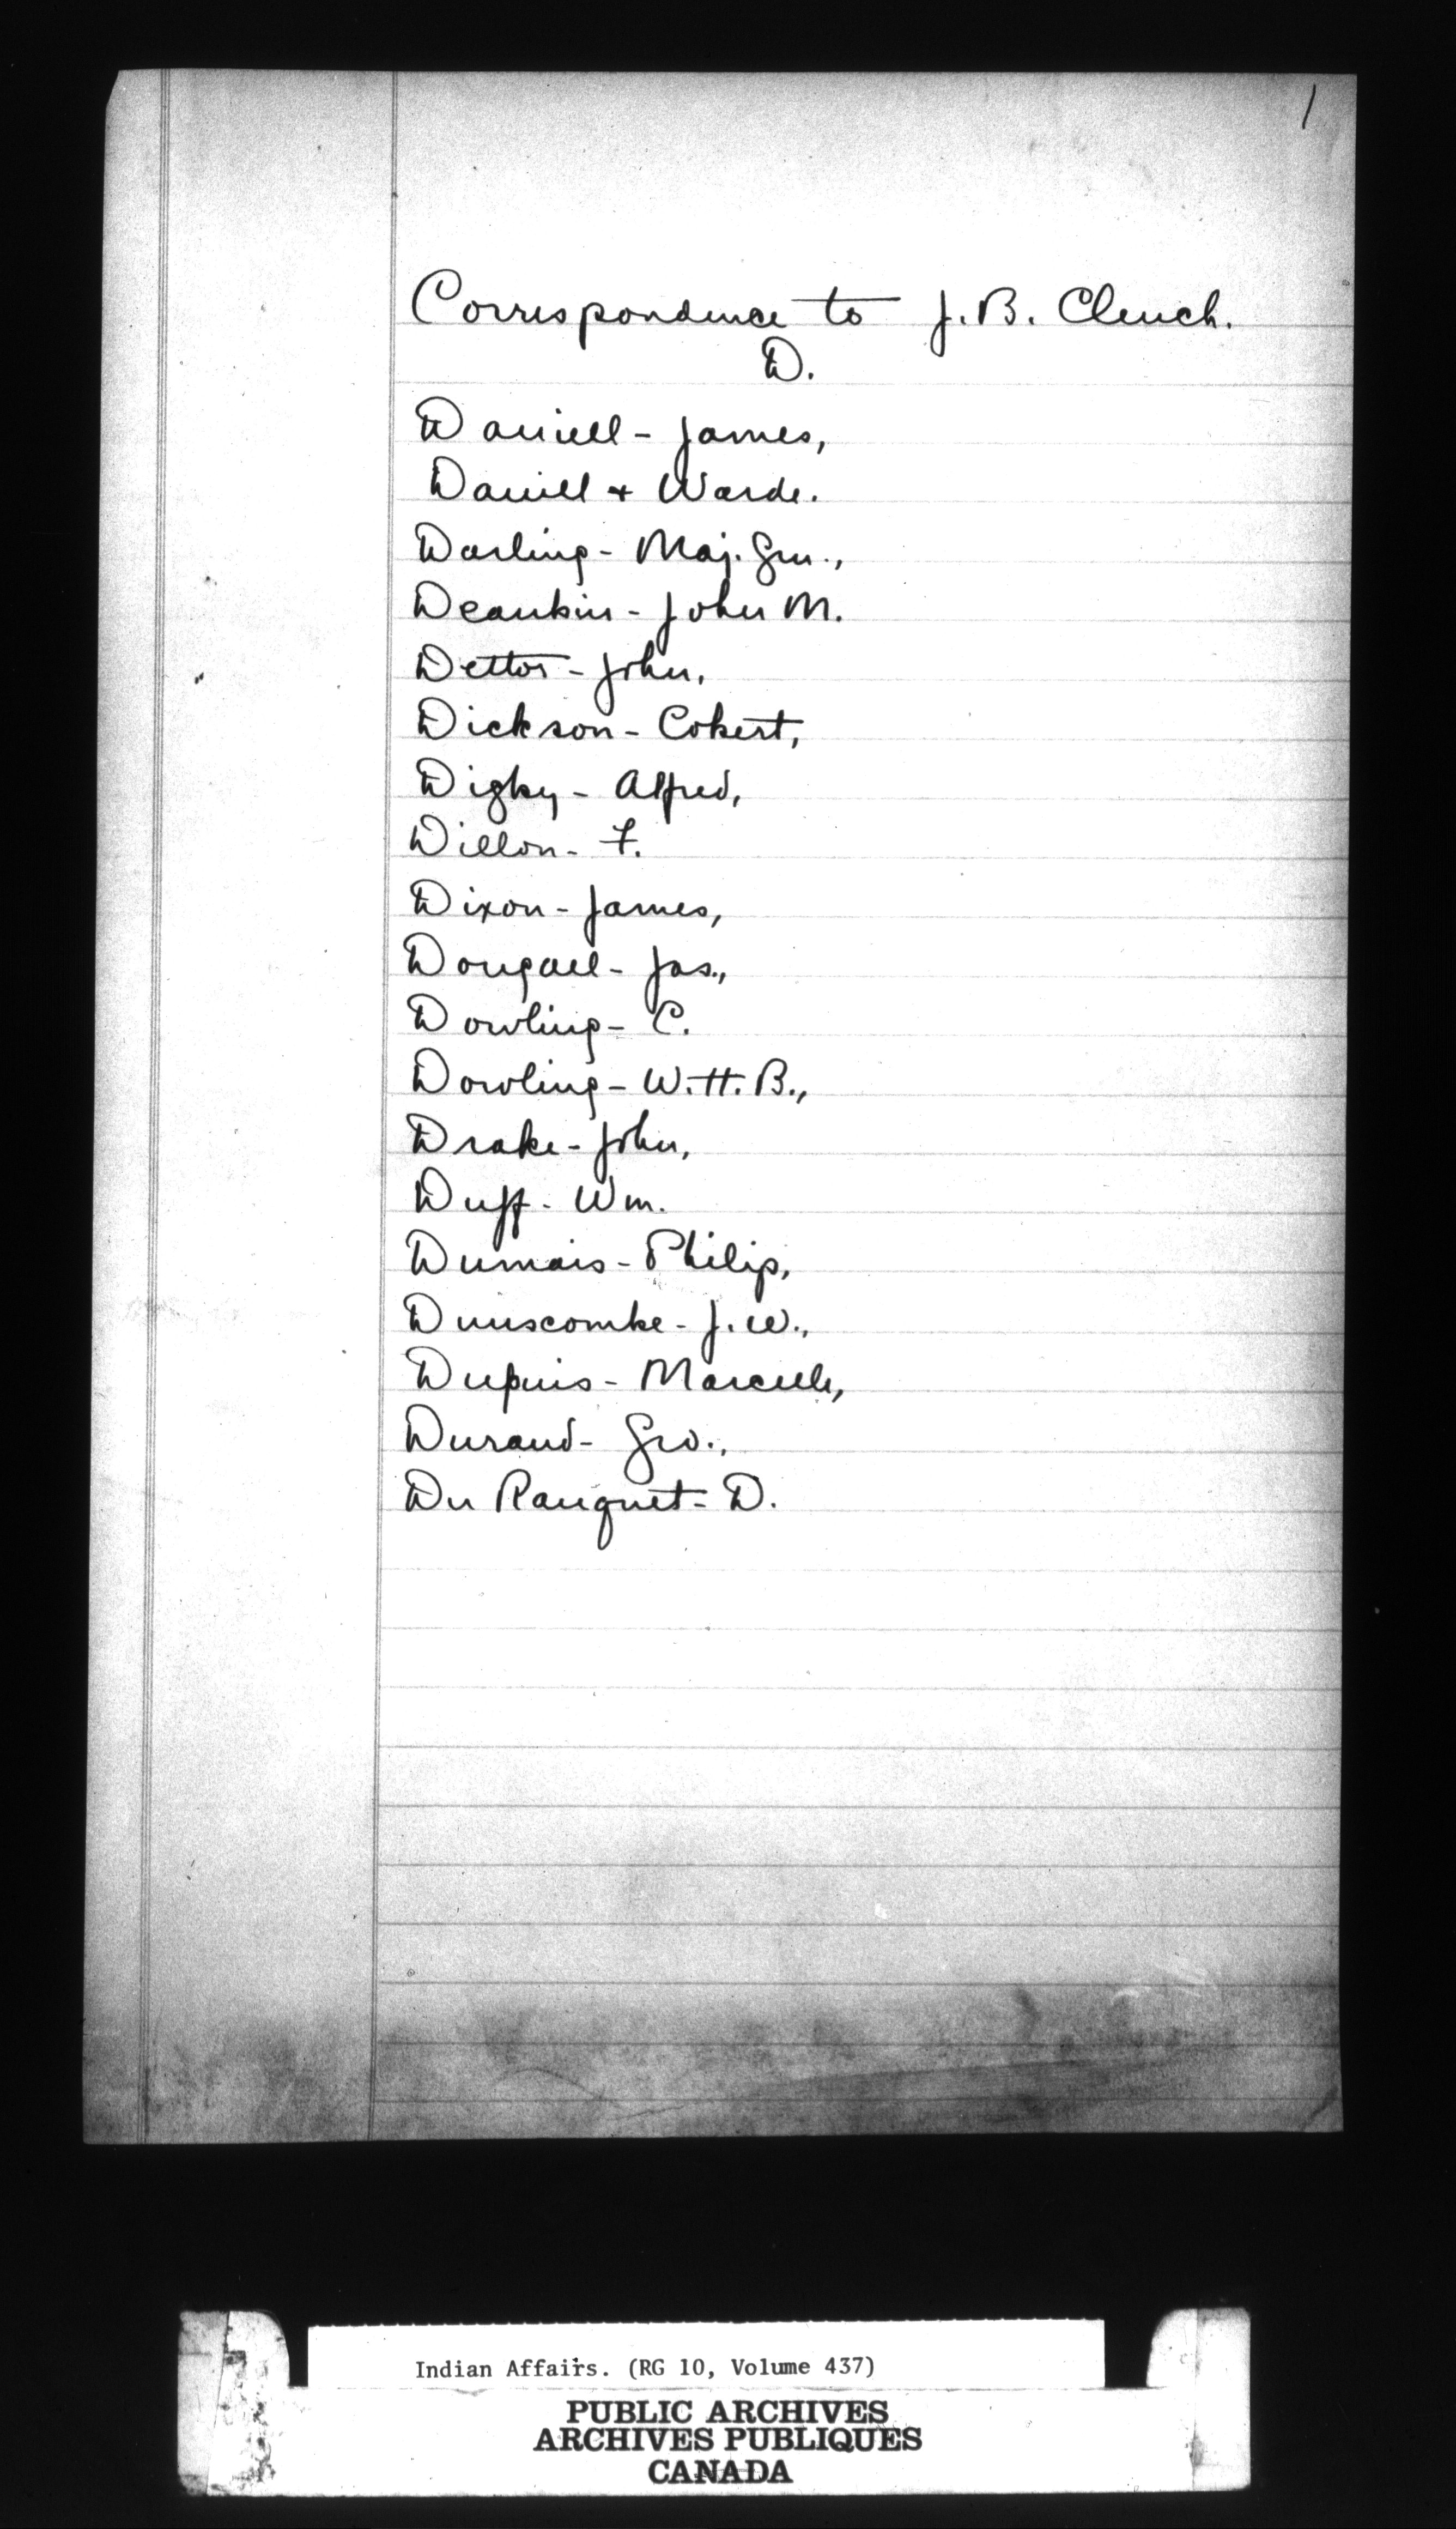 1
Correspondence to J. B. Clench.
D.
Daniell - James,
Daniell + Warde.
Darling - Maj. Gen.,
Deankin - John M.
Dettor - John,
Dickson - Cobert,
Digby - Alfred,
Dillon - F.
Dixon - James,
Dougall - Jas.,
Dowling - C.
Dowling - W. H. B.,
Drake - John,
Duff - Wm.
Dumais - Philip,
Dunscombe - J. W.,
Dupuis - Marcelle,
Durand - Geo.,
Du Ranquet - D.
Indian Affairs. (RG 10, Volume 437)
PUBLIC ARCHIVES
ARCHIVES PUBLIQUES
CANADA